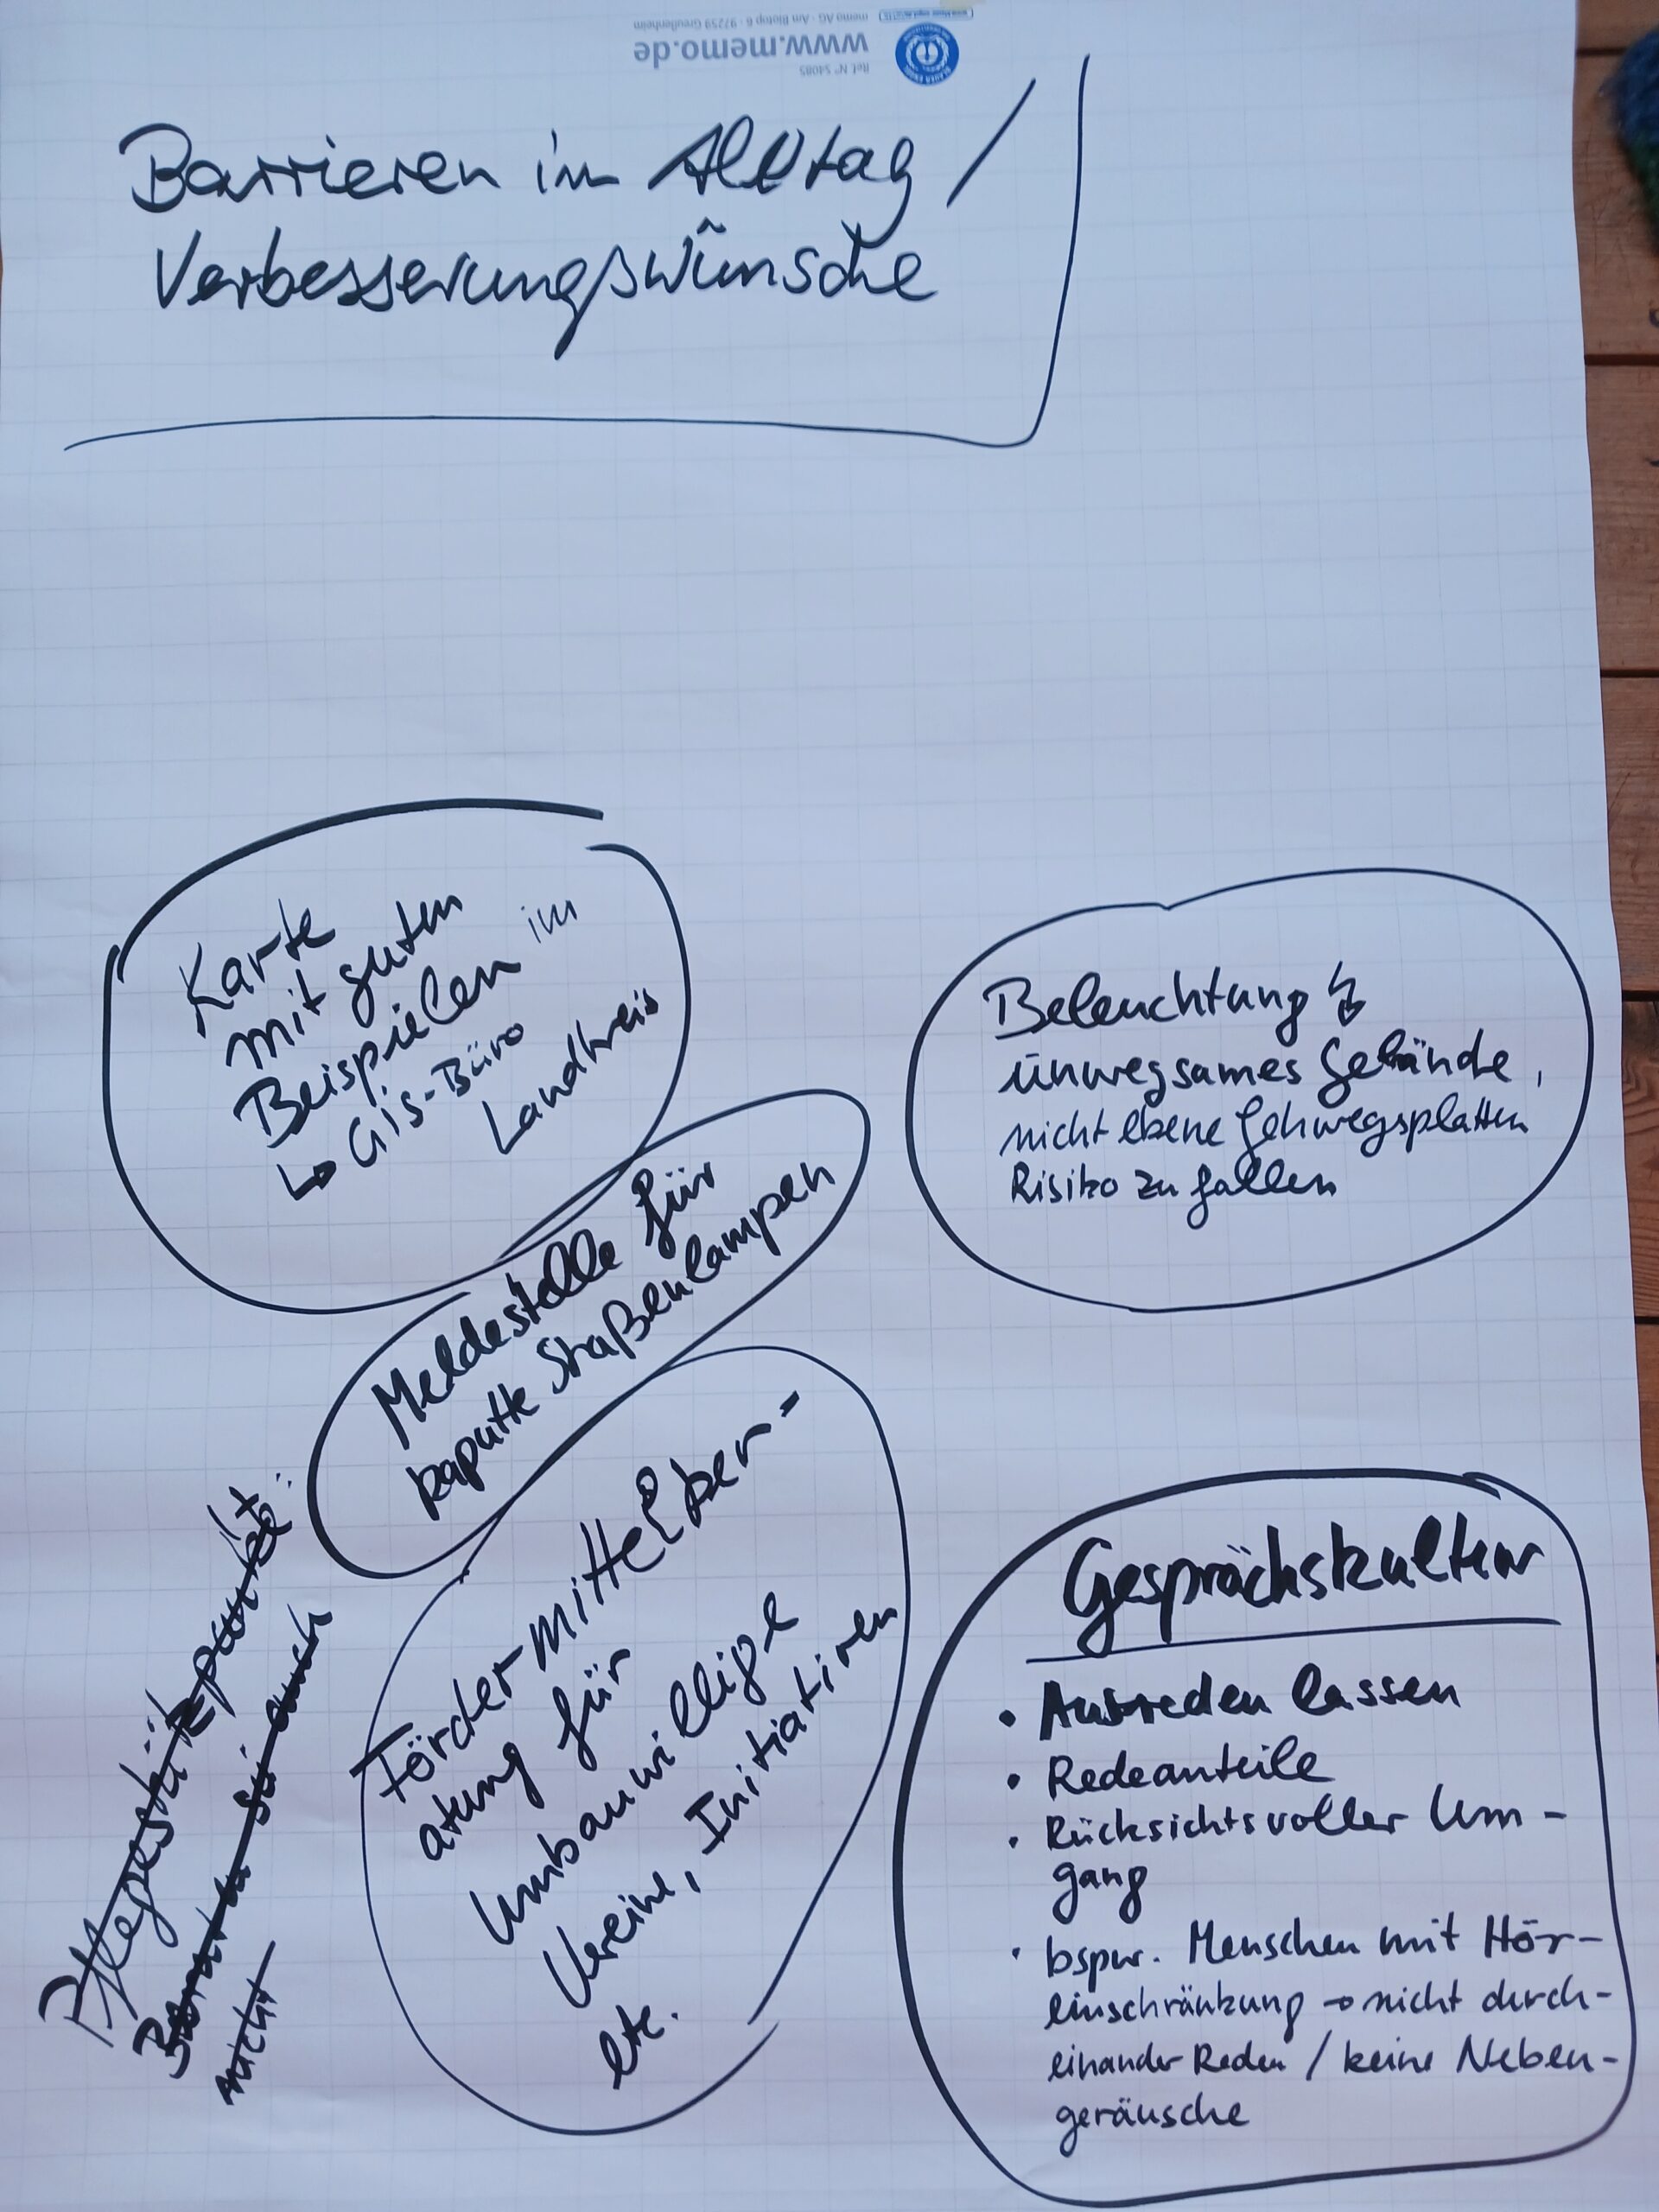 memo AG · Am Biotop 6 · 97259 Greußenheim
www.memo.de
Ref. N° 54085
Barrieren im Alltag /
Verbesserungswünsche
Karte
mit guten
Beispielen im
↳ Gis-Büro
Landkreis
Beleuchtung ↯
unwegsames Gelände,
nicht ebene Gehwegsplatten
Risiko zu fallen
Meldestelle für
kaputte Straßenlampen
Fördermittelber-
atung für
Umbauwillige
Vereine, Initiativen
etc.
Pflegestützpunkt:
nicht
Gesprächskultur
• Ausreden lassen
• Redeanteile
• Rücksichtsvoller Um-
gang
• bspw. Menschen mit Hör-
einschränkung → nicht durch-
einander Reden / keine Neben-
geräusche